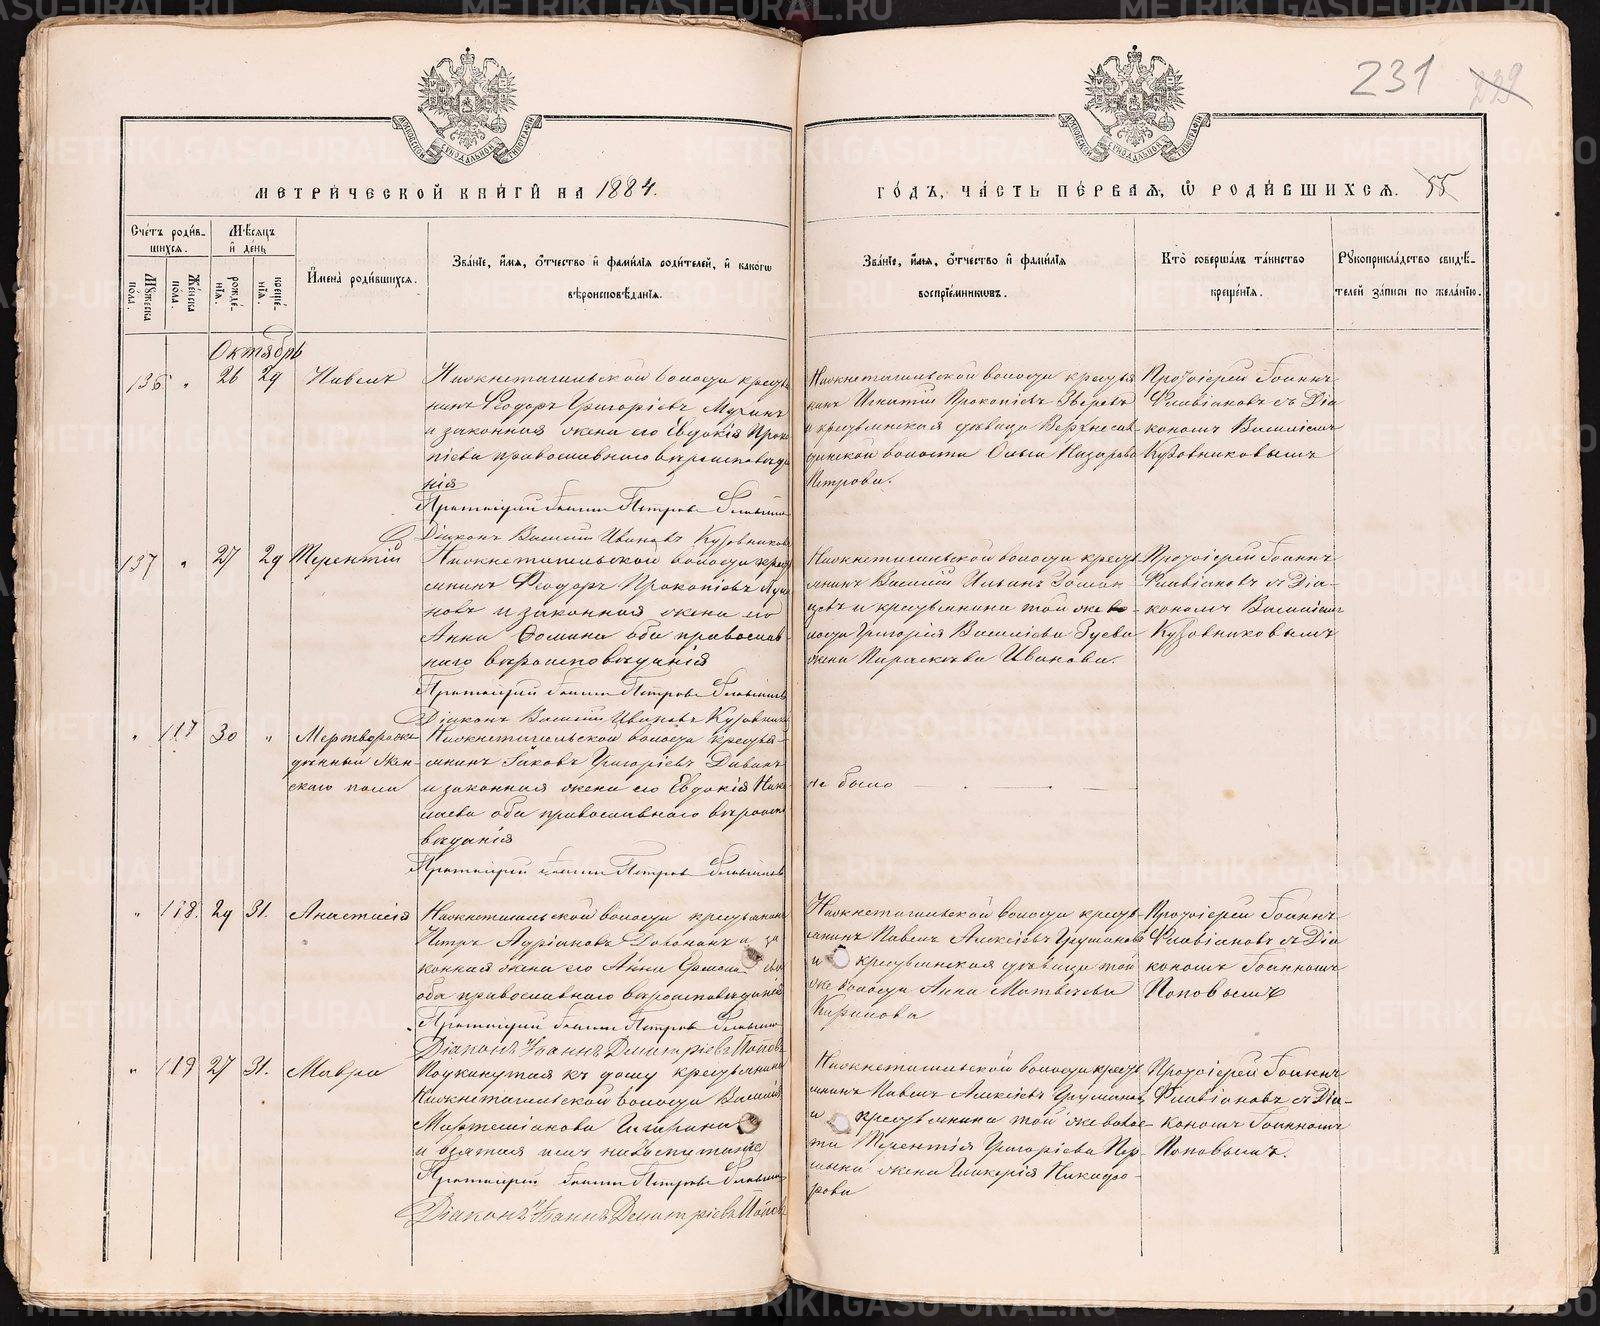 231
229
МЕТРИЧЕСКОЙ КНИГИ НА 1884.
ГОДЪ, ЧАСТЬ ПЕРВАЯ, Ѿ РОДИВШИХСЯ.
55
Счетъ родив-
шихся.
Мѣсяцъ
и день
Мужеска пола.
Женска пола.
рожде-
нія.
креще-
нія.
Имена родившихся.
Званіе, имя, отчество и фамилія родителей, и какогѡ
вѣроисповѣданія.
Званіе, имя, отчество и фамилія
воспріемниковъ.
Кто совершалъ таинство
крещенія.
Рукоприкладство свидѣ-
телей записи по желанію.
Октябрь
136 " 26 29 Павелъ
Нижнетагильской волости кресть
нинъ Ѳеодоръ Григоріевъ Мухинъ
и законная жена его Евдокія Проко
піева православнаго вѣроисповѣда
нія
Протоіерей Іоаннъ Петровъ
Діаконъ Василій Ивановъ Кузовников
Нижнетагильской волости кресть
нинъ Игнатій Прокопіевъ Зверевъ
и крестьянская дѣвица Верхнесал
динской волости Ольга Назарова
Петрова.
Протоіерей Іоаннъ
Флавіановъ съ Діа
кономъ Василіемъ
Кузовниковымъ
137 " 27 29 Терентій
Нижнетагильской волости крест
янинъ Ѳеодоръ Прокопіевъ
новъ и законная жена его
Анна Ѳомина оба православ
наго вѣроисповѣданія
Протоіерей Іоаннъ Петровъ
Діаконъ Василій Ивановъ Кузовник
Нижнетагильской волости кресть
янинъ Василій Ильинъ
цевъ и крестьянина той же во-
лости Григорія Василіева Зуева
жена Параскева Иванова.
Протоіерей Іоаннъ
Флавіановъ съ Діа-
кономъ Василіемъ
Кузовниковымъ
" 117 30 " Мертворож-
денный Жен-
скаго пола
Нижнетагильской волости крестья-
янинъ Іаковъ Григоріевъ
и законная жена его Евдокія Нико
лаева оба православнаго вѣроиспо
вѣданія
Протоіерей Іоаннъ Петровъ
не было
" 118. 29 31. Анастасія
Нижнетагильской волости крестьянинъ
Петръ Адріановъ и за
конная жена его Анна
оба православнаго вѣроисповѣданія
Протоіерей Іоаннъ Петровъ
Діаконъ Іоаннъ Димитріевъ Поповъ
Нижнетагильской волости кресть-
янинъ Павелъ Алексіевъ Грушановъ
и крестьянская дѣвица той
же волости Анна Матвѣева
Кирилова
Протоіерей Іоаннъ
Флавіановъ съ Діа
кономъ Іоанномъ
Поповымъ
" 119 27 31. Мавра
Подкинутая къ дому крестьянина
Нижнетагильской волости Василія
и взятая имъ на воспитаніе
Протоіерей Іоаннъ Петровъ
Діаконъ Іоаннъ Димитріевъ Поповъ
Нижнетагильской волости кресть
янинъ Павелъ Алексіевъ Грушановъ
и крестьянина той же волос-
ти Терентія Григоріева
жена Гликерія Никифо-
рова
Протоіерей Іоаннъ
Флавіановъ съ Діа-
кономъ Іоанномъ
Поповымъ.
METRIKI.GASO-URAL.RU